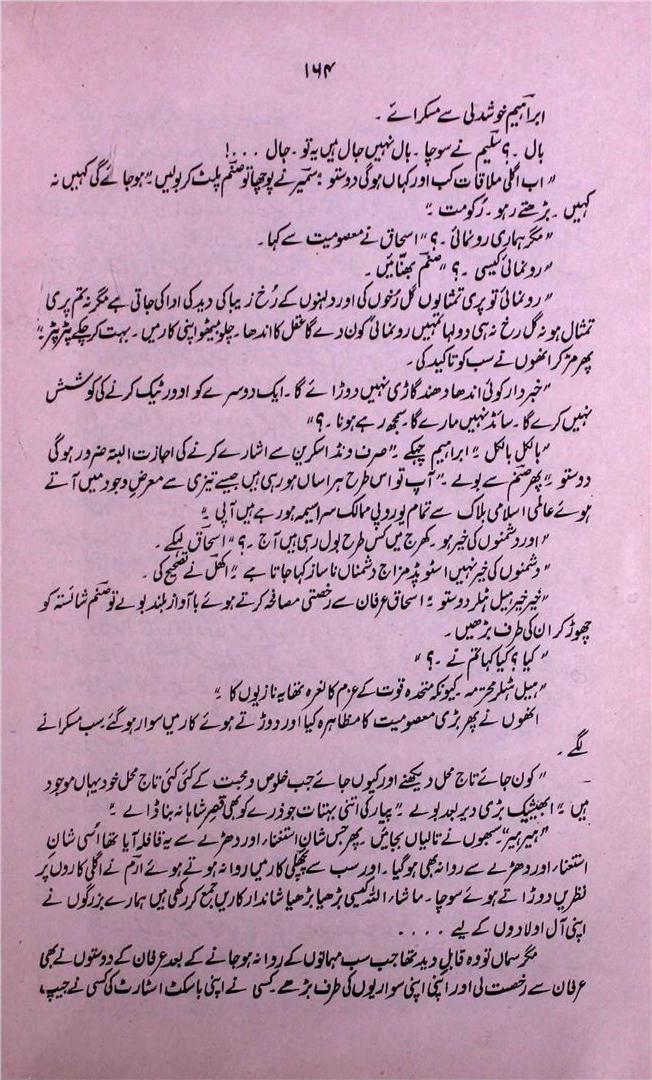 ۱۶۴
ابراہیم خوشدلی سے مسکرائے ۔
بال ۔ ؟ سلیم نے سوچا ۔ بال نہیں جال ہیں یہ تو ۔ جال . . . . !
" اب اگلی ملاقات کب اور کہاں ہوگی دوستو " سمیر نے پوچھا تو صنم پلٹ کر بولیں " ہو جائے گی کہیں نہ
کہیں ۔ بڑھتے رہو ۔ رکو مت ۔ "
" مگر ہماری رونمائی ۔ ؟ " اسحاق نے معصومیت سے کہا ۔
" رونمائی کیسی ۔ ؟ " صنم بھنّائیں ۔
" رونمائی تو پری تمثالوں گل رخوں کی اور دلہنوں کے رُخ زیبا کی دید کی ادا کی جاتی ہے مگر نہ تم پری
تمثال ہو نہ گل رخ نہ ہی دولہا تمہیں رونمائی کون دے گا عقل کا اندھا ۔ چلو بیٹھو اپنی کار میں ۔ بہت کر چکے پٹر پٹر "
پھر مڑ کر انھوں نے سب کو تاکید کی ۔
" خبردار کوئی اندھا دھند گاڑی نہیں دوڑائے گا ۔ ایک دوسرے کو اوور ٹیک کرنے کی کوشش
نہیں کرے گا ۔ سائڈ نہیں مارے گا ۔ سمجھ رہے ہونا ۔ ؟ "
" بالکل بالکل " ابراہیم چہکے " صرف ونڈ اسکرین سے اشارے کرنے کی اجازت البتہ ضرور ہوگی
دوستو " پھر صنم سے بولے ۔ " آپ تو اس طرح ہراساں ہو رہی ہیں جیسے تیزی سے معرضِ وجود میں آتے
ہوئے عالمی اسلامی بلاک سے تمام یوروپی ممالک سراسیمہ ہو رہے ہیں آپی "
" اور دشمنوں کی خیر ہو ۔ کھرج میں کس طرح بول رہی ہیں آج ۔ ؟ " اسحاق لپکے ۔
" دشمنوں کی خیر نہیں اسٹوپڈ مزاج دشمناں ناساز کہا جاتا ہے " اکھل نے تصحیح کی ۔
" خیر خیر ہیل ہٹلر دوستو " اسحاق عرفان سے رخصتی مصافحہ کرتے ہوئے بآواز بلند بولے تو صنم شائستہ کو
چھوڑ کر ان کی طرف بڑھیں ۔
" کیا ؟ کیا کہا تم نے ۔ ؟ "
" ہیل ہٹلر محترمہ ۔ کیونکہ متحدہ قوت کے عزم کا نعرہ تھا یہ نازیوں کا "
انھوں نے پھر بڑی معصومیت کا مظاہرہ کیا اور دوڑتے ہوئے کار میں سوار ہو گئے ۔ سب مسکرانے
لگے ۔
" کون جائے تاج محل دیکھنے اور کیوں جائے جب خلوص و محبت کے کئی کئی تاج محل خود یہاں موجود
ہیں " ابھیشیک بڑی دیر بعد بولے " پیار کی اتنی بہتات جو ذرے کو بھی قصرِ شاہانہ بنا ڈالے "
" ہیر ہیر " سبھوں نے تالیاں بجائیں ۔ پھر جس شانِ استغناء اور دھڑلے سے یہ قافلہ آیا تھا اُسی شان
استغناء اور دھڑلے سے روانہ بھی ہو گیا ۔ اور سب سے پچھلی کار میں روانہ ہوتے ہوئے ارم نے اگلی کاروں پر
نظریں دوڑاتے ہوئے سوچا ۔ ماشاء اللہ کیسی بڑھیا بڑھیا شاندار کاریں جمع کر رکھی ہیں ہمارے بزرگوں نے
اپنی آل اولادوں کے لیے . . . .
مگر سماں تو وہ قابلِ دید تھا جب سب مہمانوں کے روانہ ہو جانے کے بعد عرفان کے دوستوں نے بھی
عرفان سے رخصت لی اور اپنی اپنی سواریوں کی طرف بڑھے ۔ کسی نے اپنی باسکٹ اسٹارٹ کی کسی نے جیپ ،